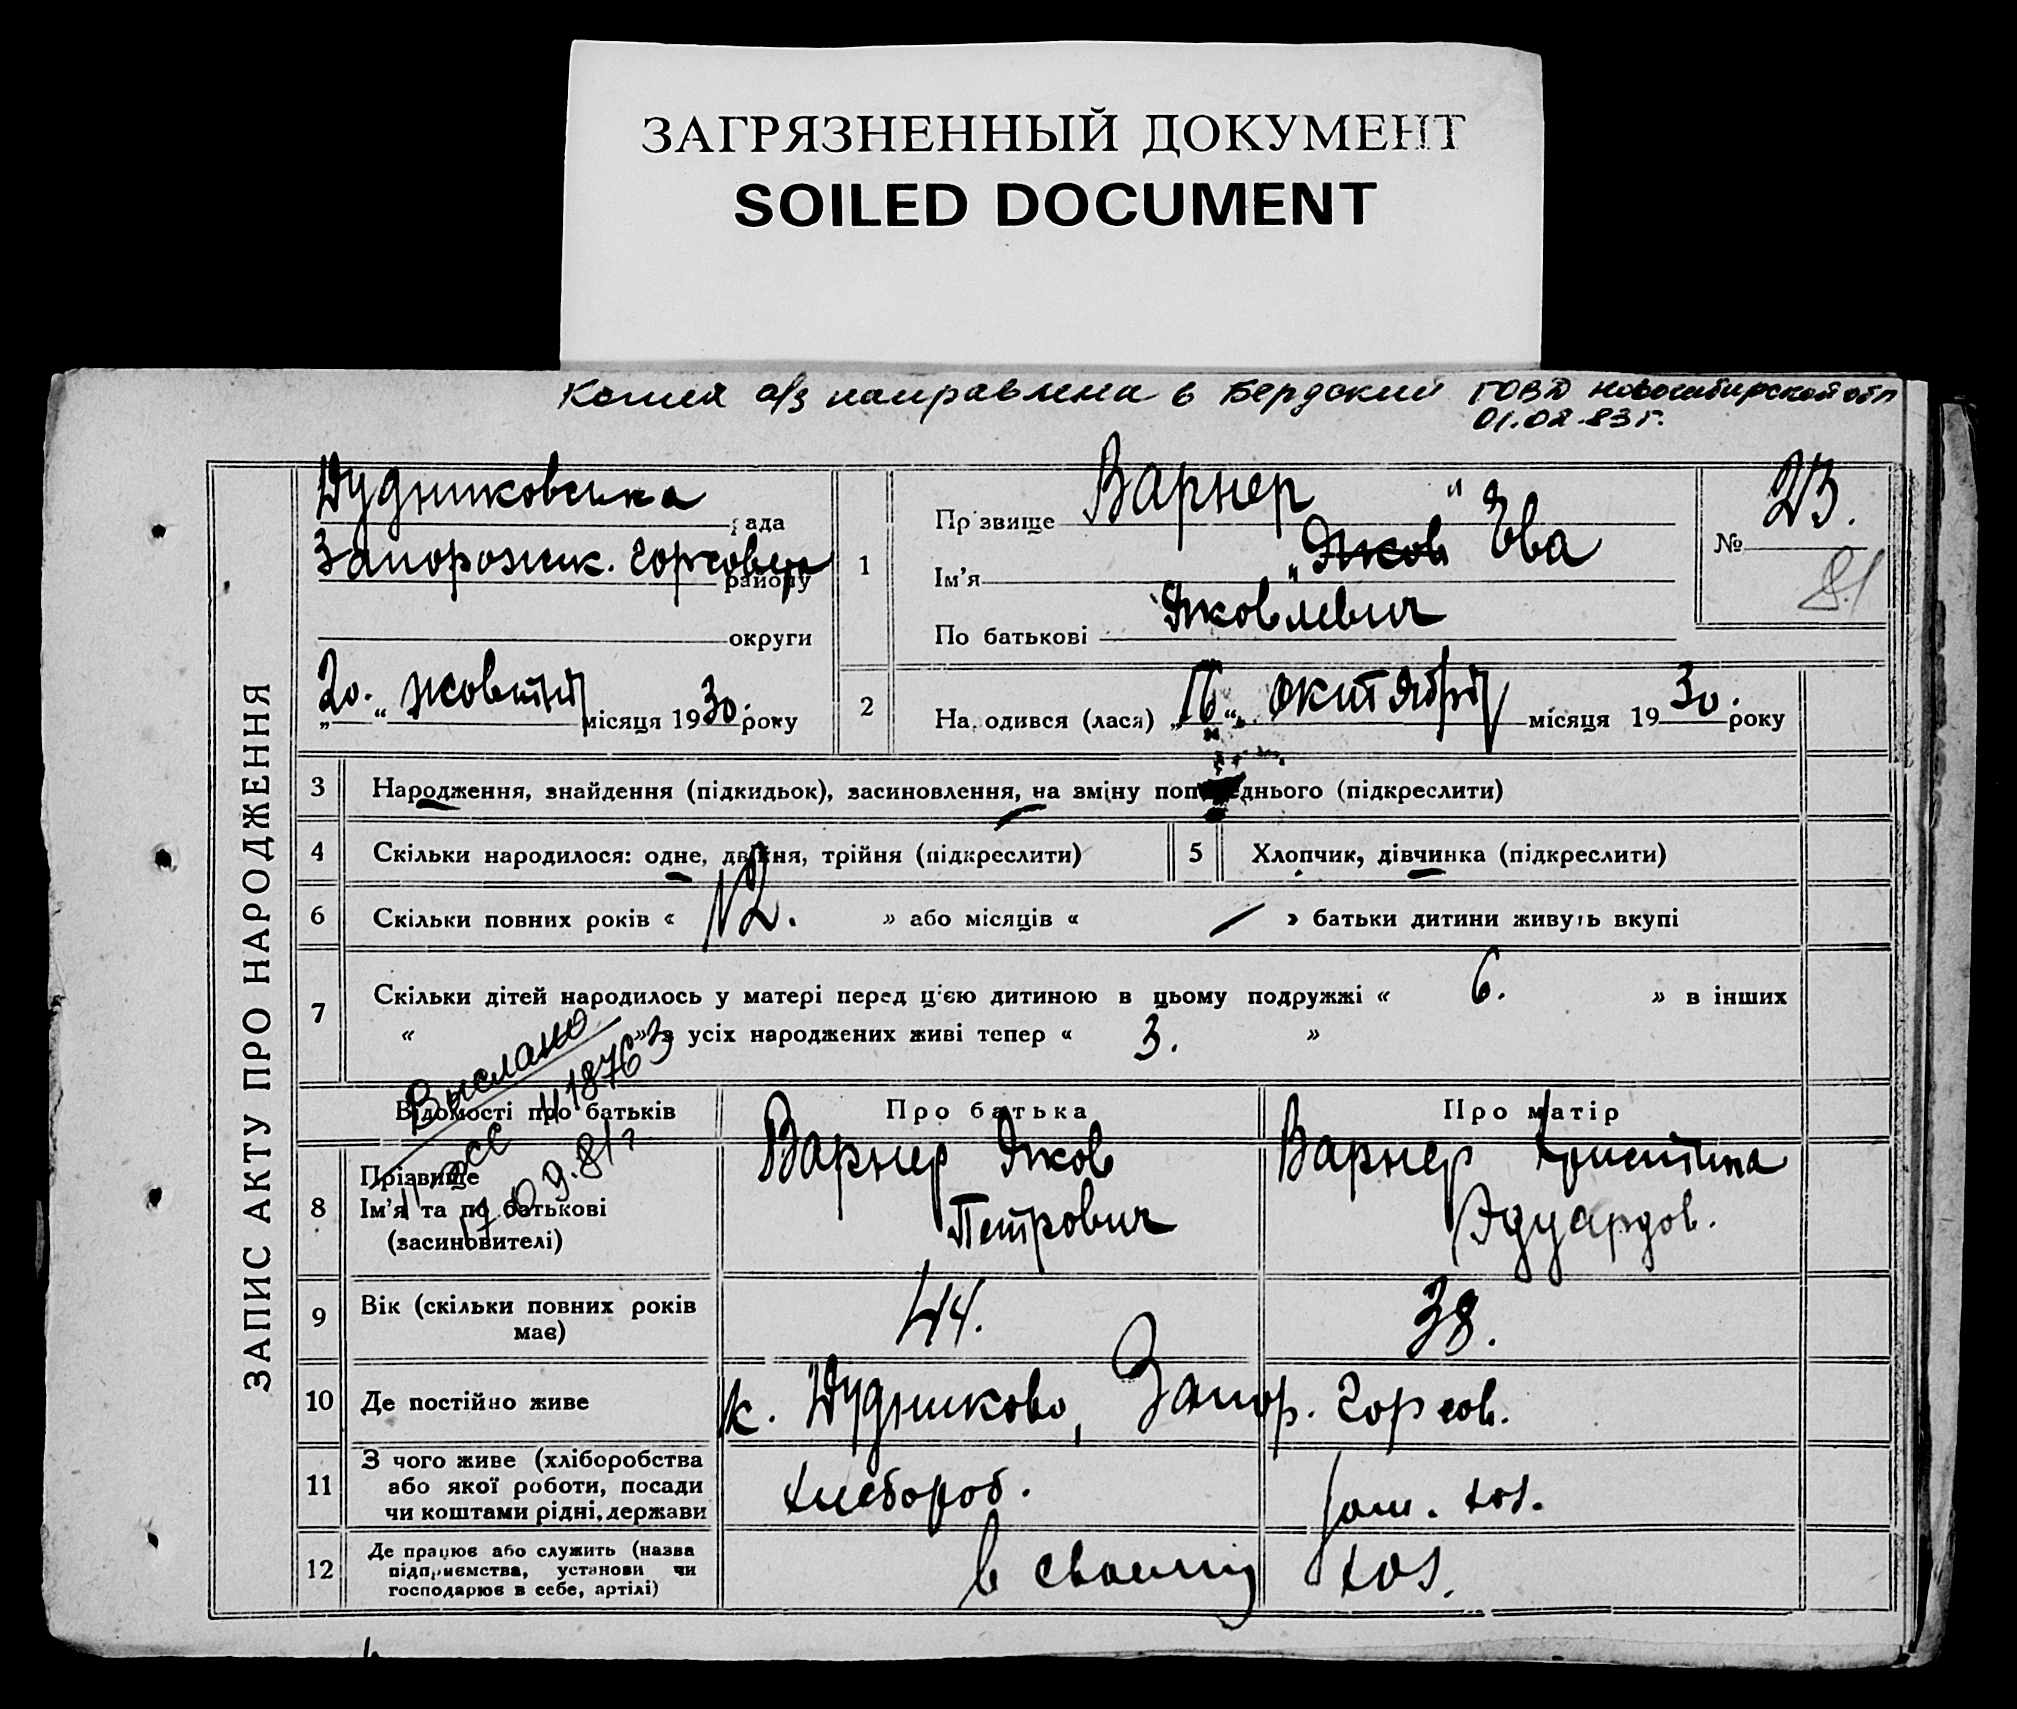 ЗАГРЯЗНЕННЫЙ ДОКУМЕНТ
SOILED DOCUMENT
Копия а/з направлена в Бердский ГОВД Новосибирской обл
01.02.83 г.
ЗАПИС АКТУ ПРО НАРОДЖЕННЯ
Дудниковська рада
Запорожск. Горсовета району
округи
„20.“ жовтня місяця 1930. року
1
Прізвище Варнер "
Ім'я „Яков Ева
По батькові Яковлевич
№ 23.
81
2 Народився (лася) „16“ октября місяця 1930. року
3 Народження, знайдення (підкидьок), засиновлення, на зміну попереднього (підкреслити)
4 Скільки народилося: одне, двійня, трійня (підкреслити) 5 Хлопчик, дівчинка (підкреслити)
6 Скільки повних років « 12. » або місяців « — » батьки дитини живуть вкупі
7 Скільки дітей народилось у матері перед цією дитиною в цьому подружжі « 6. » в інших
« » з усіх народжених живі тепер « 3. »
Выслано
11876 3
17.09.81 г
Відомості про батьків Про батька Про матір
8 Прізвище
Ім'я та по батькові
(засиновителі)
Варнер Яков
Петрович
Варнер Христина
Эдуардов.
9 Вік (скільки повних років
має)
44. 38.
10 Де постійно живе к. Дудниково, Запор. Горсов.
11 З чого живе (хліборобства
або якої роботи, посади
чи коштами рідні, держави
хлебороб. дом. хоз.
12 Де працює або служить (назва
підприємства, установи чи
господарює в себе, артілі)
в своему хоз.